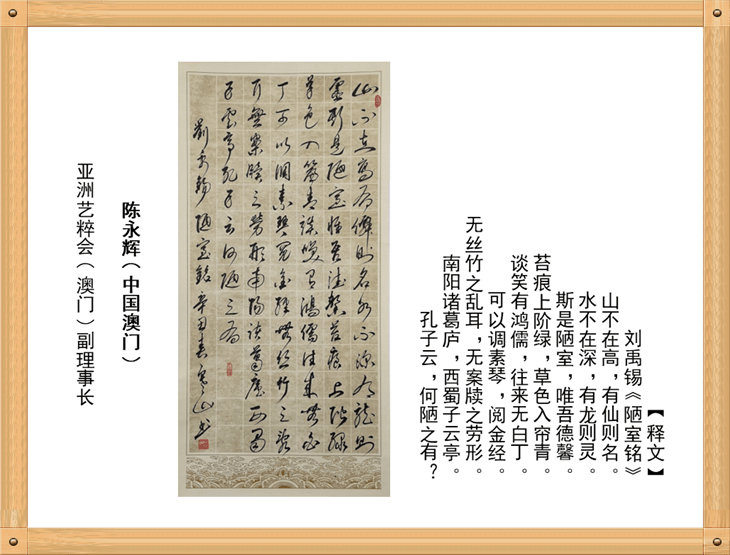 【释文】
刘禹锡《陋室铭》
山不在高，有仙则名。
水不在深，有龙则灵。
斯是陋室，唯吾德馨。
苔痕上阶绿，草色入帘青。
谈笑有鸿儒，往来无白丁。
可以调素琴，阅金经。
无丝竹之乱耳，无案牍之劳形。
南阳诸葛庐，西蜀子云亭。
孔子云，何陋之有？
山不在高有僊則名水不深有龍則
靈斯是陋室惟吾德馨苔痕上階綠
草色入簾青談笑有鴻儒往來無白
丁可以調素琴閱金經無丝竹之亂
耳無案牘之勞形南陽諸葛廬西蜀
子雲亭孔子云何陋之有
劉禹錫陋室銘辛丑春
陈永辉（中国澳门）
亚洲艺粹会（澳门）副理事长